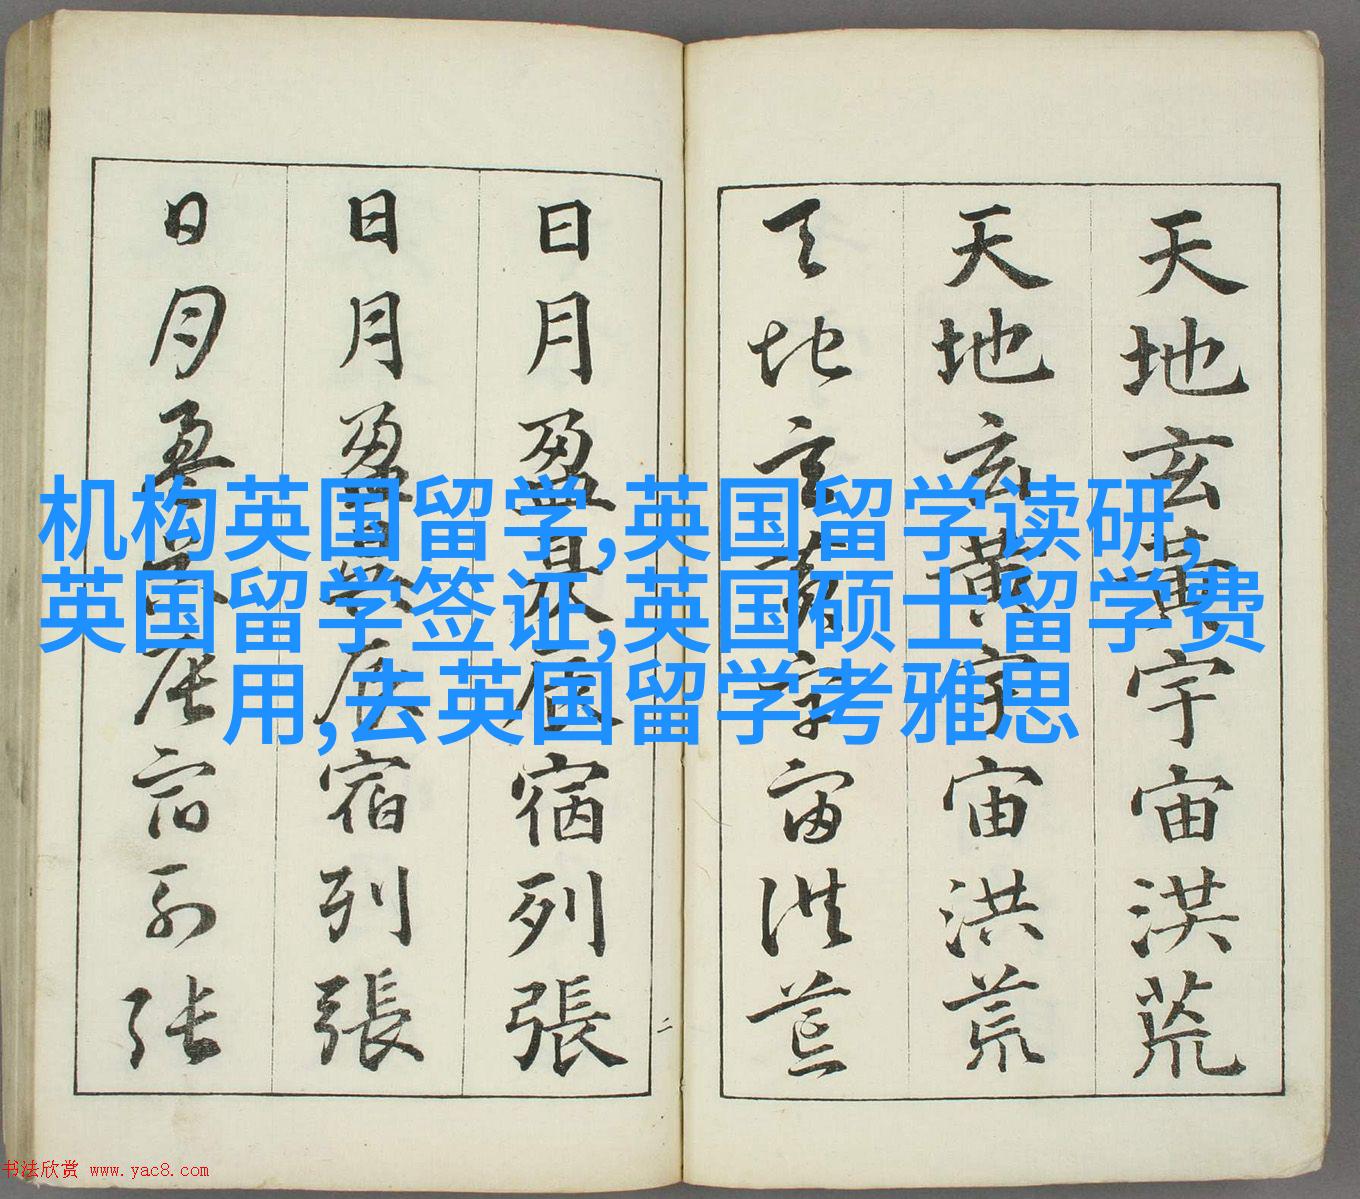 天地玄黃宇宙洪荒
天地玄黃宇宙洪荒
天地玄黃宇宙洪荒
日月盈昃辰宿列張
日月盈昃辰宿列張
日月盈昃辰宿列張
二
机构英国留学,英国留学读研,
英国留学签证,英国硕士留学费
用,去英国留学考雅思
书法欣赏 www.yac8.com